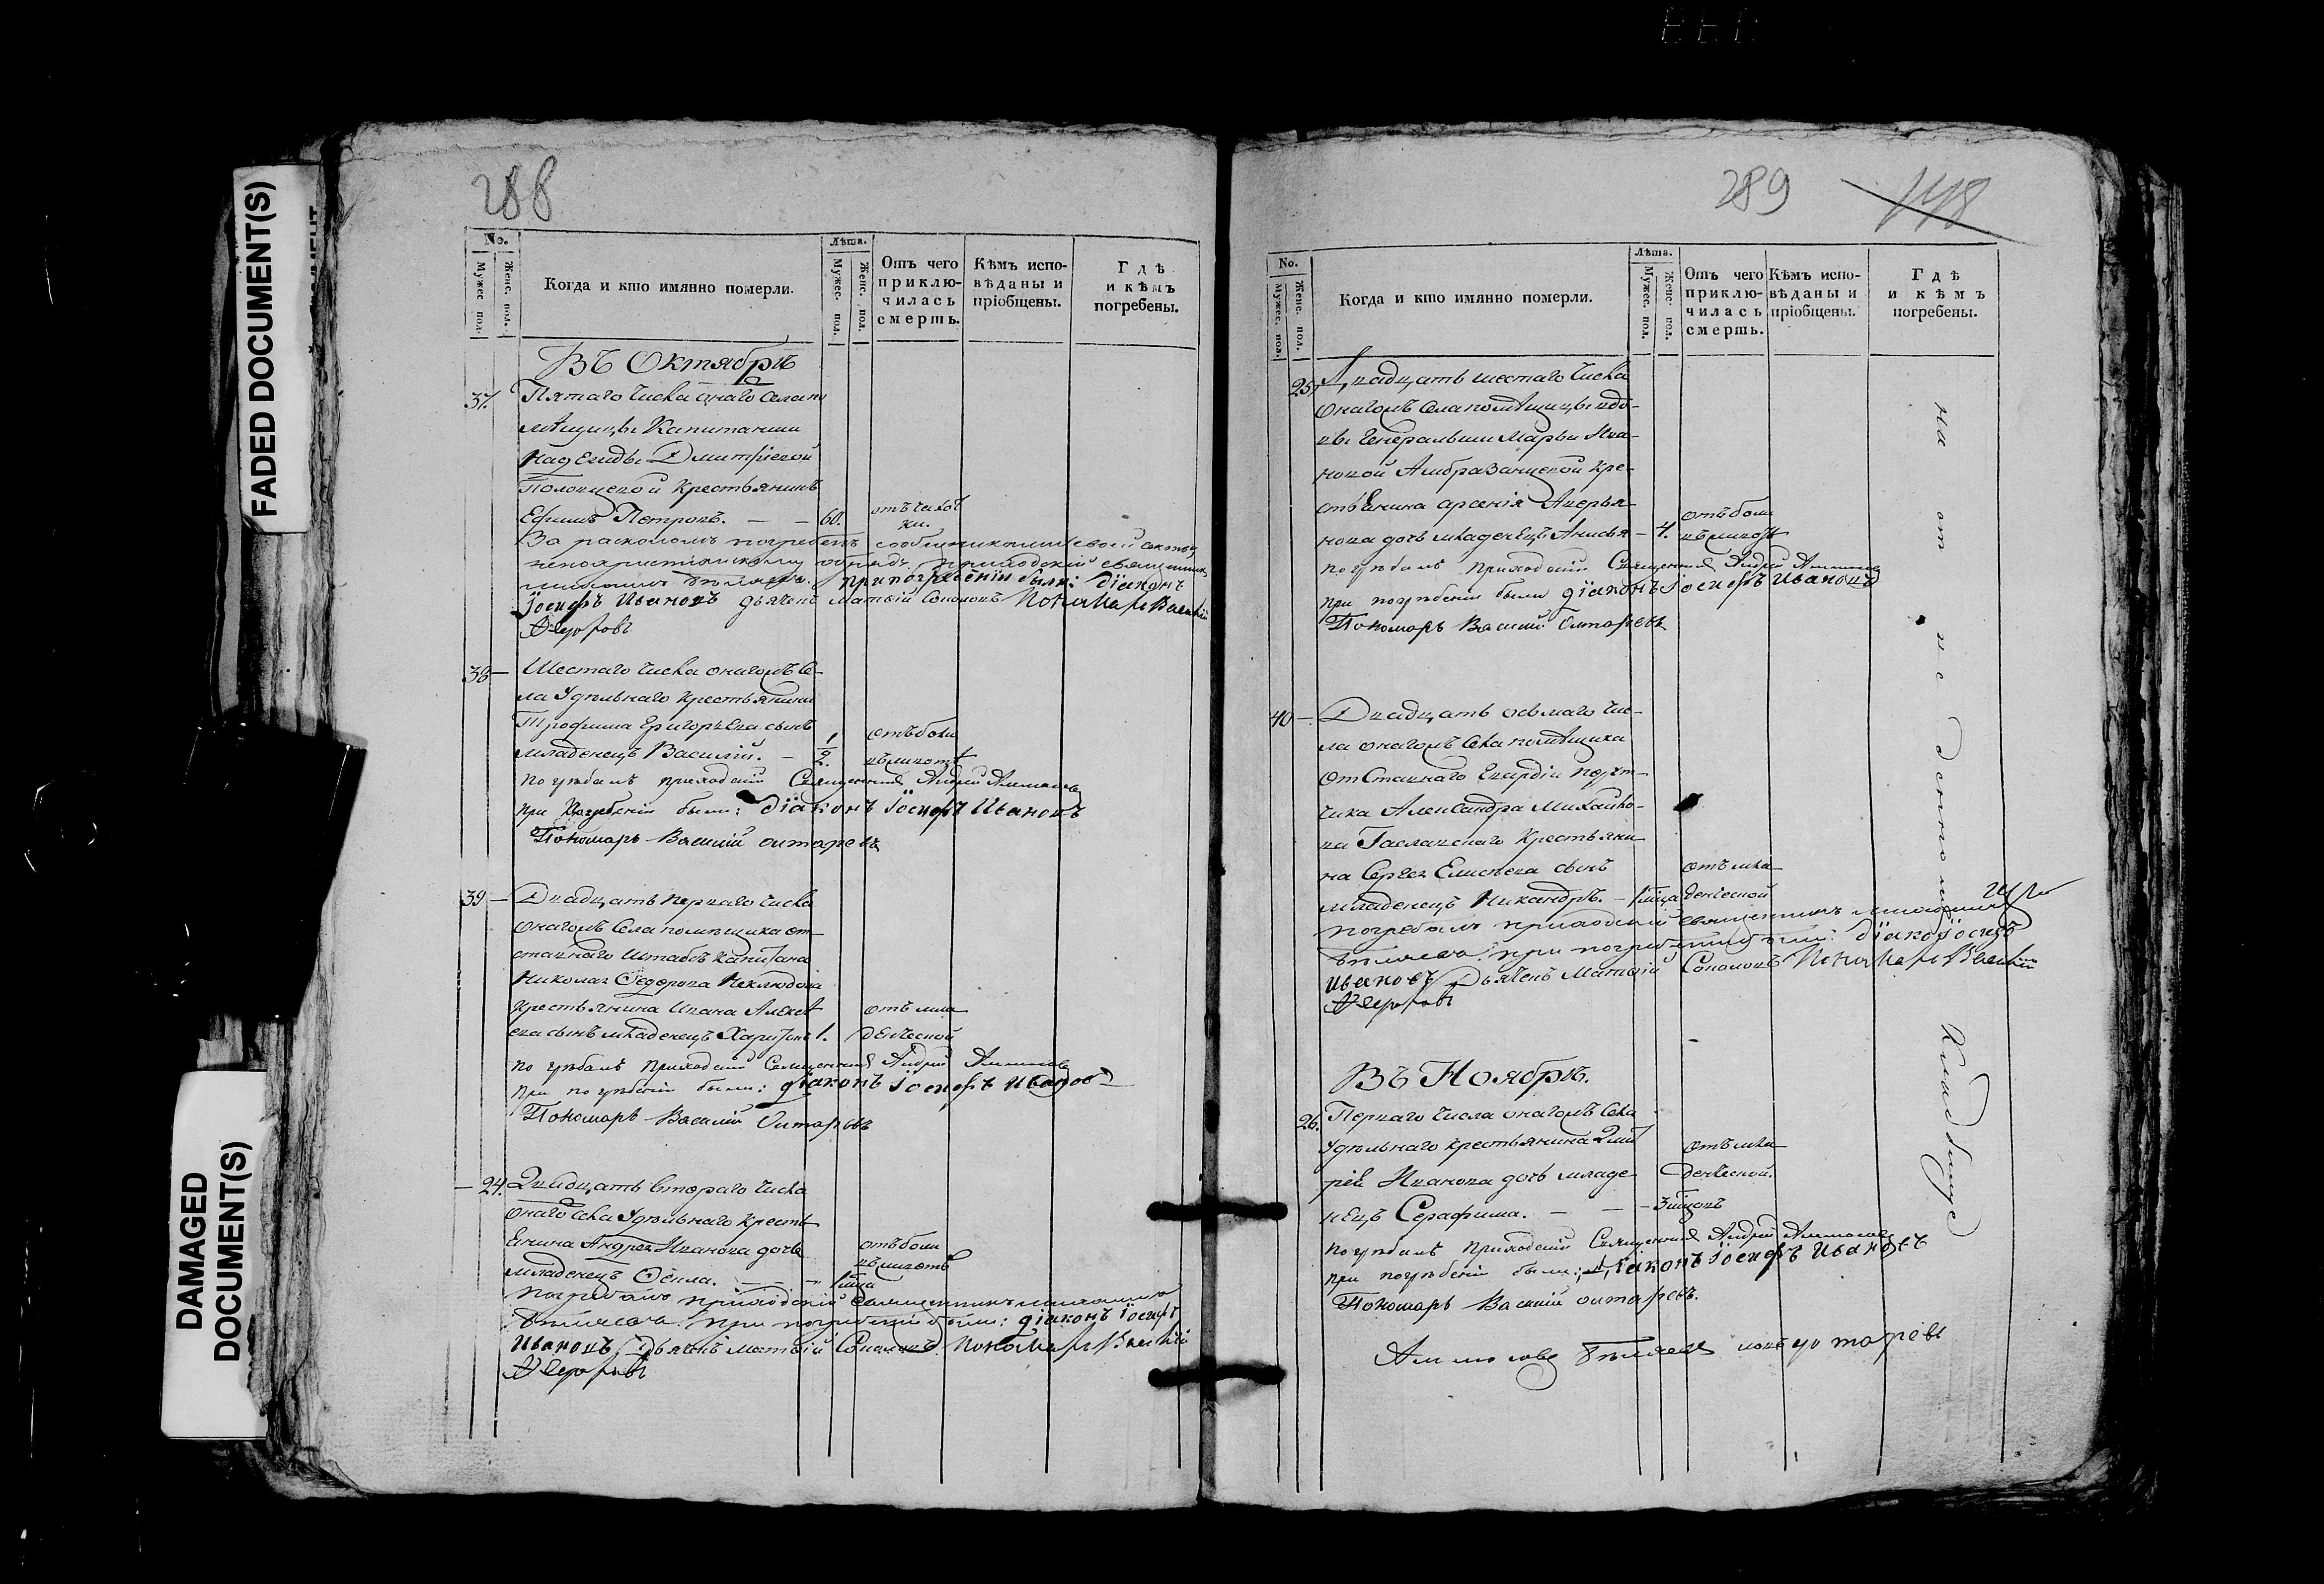 FADED DOCUMENT(S)
DAMAGED
DOCUMENT(S)
288
No.
Мужес. пол.
Женс. пол.
Когда и кто имянно померли.
Лѣта.
Мужес. пол.
Женс. пол.
Отъ чего
приклю-
чилась
смерть.
Кѣмъ испо-
вѣданы и
пріобщены.
Гдѣ
и кѣмъ
погребены.
Въ Октябрѣ
37. Пятаго числа онаго села по
мѣщицы Капитанши
Надежды Дмитріевой
Полонцевой крестьянинъ
Ефимъ Петровъ. — — 60. отъ чахот
ки.
За расколомъ погребенъ сообщниками своей секты
при погребеніи были: діаконъ
Іосифъ Ивановъ дьячекъ Матвій Соколовъ Пономарь Василій
Федоровъ
38 — Шестаго числа онагомъ се-
ла Удѣльнаго крестьянина
Трофима Григорьева сынъ
младенецъ Василій. — 1/2. отъ боли
въ животѣ
погребалъ приходскій Священникъ Андрей Аммосовъ
при погребеніи были: діаконъ Іосифъ Ивановъ
Пономарь Василій Октаревъ
39 — Двадцать перваго числа
онагомъ села помѣщика от-
ставнаго Штабсъ Капитана
Николая Ѳедорова Неклюдова
крестьянина Ивана Алексѣ
ева сынъ младенецъ Харитонъ 1. отъ мла
денческой
погребалъ приходскій Священникъ Андрей Аммосовъ
при погребеніи были: діаконъ Іосифъ Ивановъ
Пономарь Василій Октаревъ
— 24. Двадцать втораго числа
онаго села Удѣльнаго кресть
янина Андрея Иванова дочь
младенецъ Ѳёкла. — — — 1 мца отъ боли
въ животѣ
погребалъ приходскій Священникъ
при погребеніи были: діаконъ Іосифъ
Ивановъ, Дьячекъ Матвій Соколовъ Пономарь Василій
Федоровъ
289
148
No.
Мужес. пол.
Женс. пол.
Когда и кто имянно померли.
Лѣта.
Мужес. пол.
Женс. пол.
Отъ чего
приклю-
чилась
смерть.
Кѣмъ испо-
вѣданы и
пріобщены.
Гдѣ
и кѣмъ
погребены.
25. Двадцать шестаго числа
онагомъ села помѣщицы вдо-
вы Генеральши Марьи Ива-
новой Амбразанцевой кре-
стьянина Арсенія Аверья-
нова дочь младенецъ Анисья — 4. отъ боли
въ животѣ
погребалъ приходскій Священникъ Андрей Аммосовъ
при погребеніи были діаконъ Іосифъ Ивановъ
Пономарь Василій Октаревъ
40 — Двадцать осьмаго чис-
ла онагомъ села помѣщика
отставнаго Гвардіи порут-
чика Александра Михайло-
ва Гаславскаго крестьяни
на Сергея Елисѣева сынъ
младенецъ Никандръ. — 1 мца отъ мла-
денческой
погребалъ приходскій священникъ
при погребеніи были: діаконъ Іосифъ
Ивановъ Дьячекъ Матвій Соколовъ Пономарь Василій
Федоровъ
Въ Ноябрѣ.
26. Перваго числа онагомъ села
Удѣльнаго крестьянина Дмит
рія Иванова дочь младе-
нецъ Серафима. — — — 3 мцовъ отъ мла-
денческой.
погребалъ приходскій Священникъ Андрей Аммосовъ
при погребеніи были: діаконъ Іосифъ Ивановъ
Пономарь Василій Октаревъ.
Кладбище